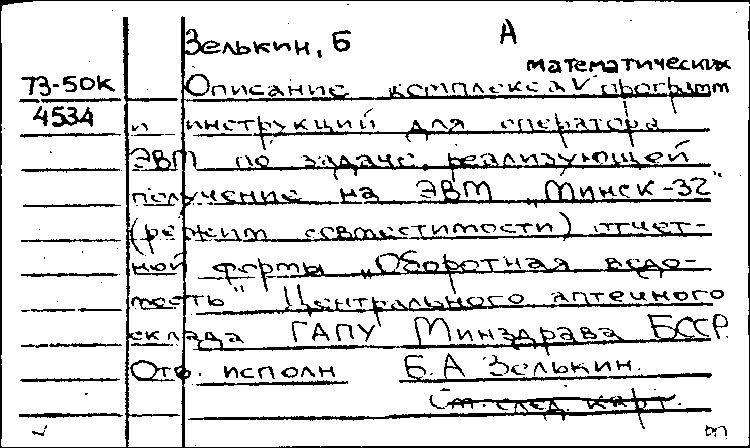 Зелькин, Б А
математических
73-50К Описание комплекса V программ
4534 и инструкций для оператора
ЭВМ по задаче, реализующей
получение на ЭВМ „Минск-32"
(режим совместимости) отчет-
ной формы „Оборотная ведо-
мость" Центрального аптечного
склада ГАПУ Минздрава БССР.
Отв. исполн Б.А Зелькин.
См. след. карт.